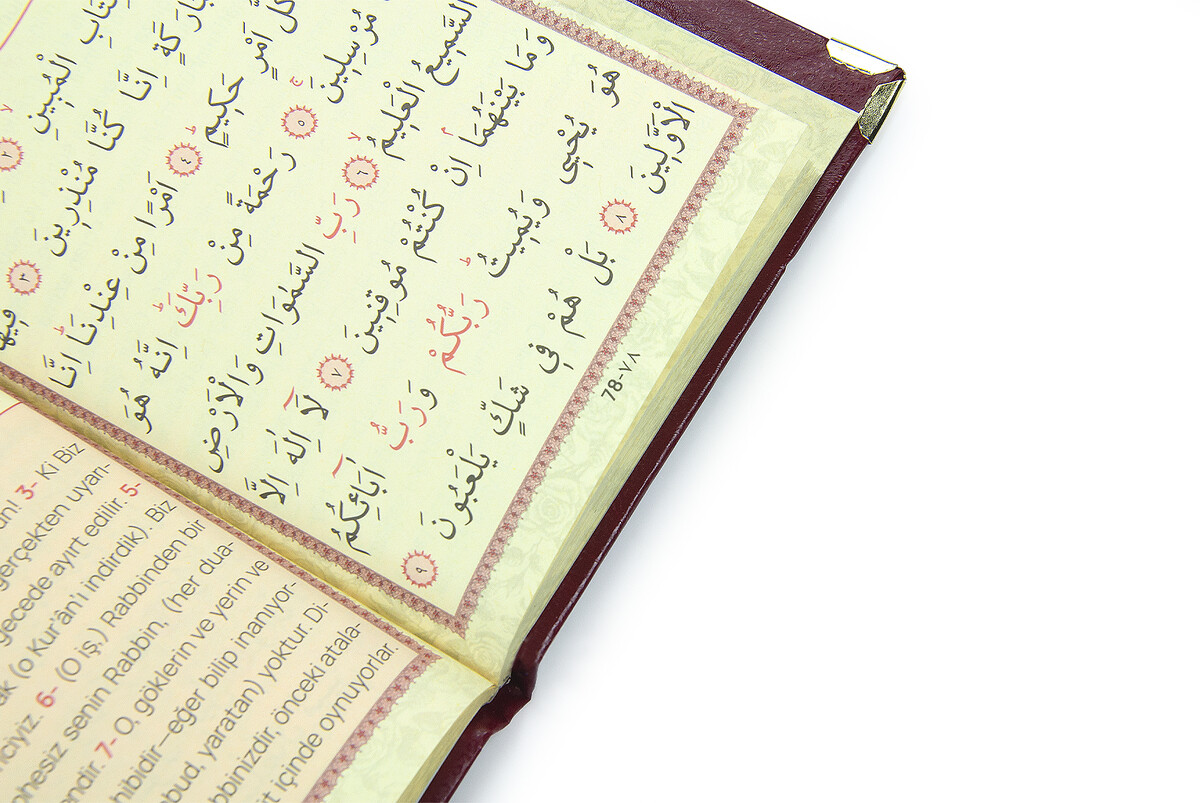 تَابِ الْمُبِينِ ٢
بَارَكَةٍ اِنَّا كُنَّا مُنْذِرِينَ ٣ فِيهَا
كُلُّ اَمْرٍ حَكِيمٍ ٤ اَمْرًا مِنْ عِنْدِنَا اِنَّا
مُرْسِلِينَ ٥ رَحْمَةً مِنْ رَبِّكَ اِنَّهُ هُوَ
السَّمِيعُ الْعَلِيمُ ٦ رَبِّ السَّمٰوَاتِ وَالْاَرْضِ
وَمَا بَيْنَهُمَا اِنْ كُنْتُمْ مُوقِنِينَ ٧ لَا اِلٰهَ اِلَّا
هُوَ يُحْيِى وَيُمِيتُ رَبُّكُمْ وَرَبُّ اٰبَائِكُمُ
الْاَوَّلِينَ ٨ بَلْ هُمْ فِى شَكٍّ يَلْعَبُونَ ٩
78-٧٨
3- Ki Biz
gerçekten uyarı-
gecede ayırt edilir. 5-
(o Kur'ân'ı indirdik). Biz
ncıyız. 6- (O iş,) Rabbinden bir
phesiz senin Rabbin, (her dua-
endir. 7- O, göklerin ve yerin ve
hibidir—eğer bilip inanıyor-
bud, yaratan) yoktur. Di-
bbinizdir, önceki atala-
t içinde oynuyorlar.